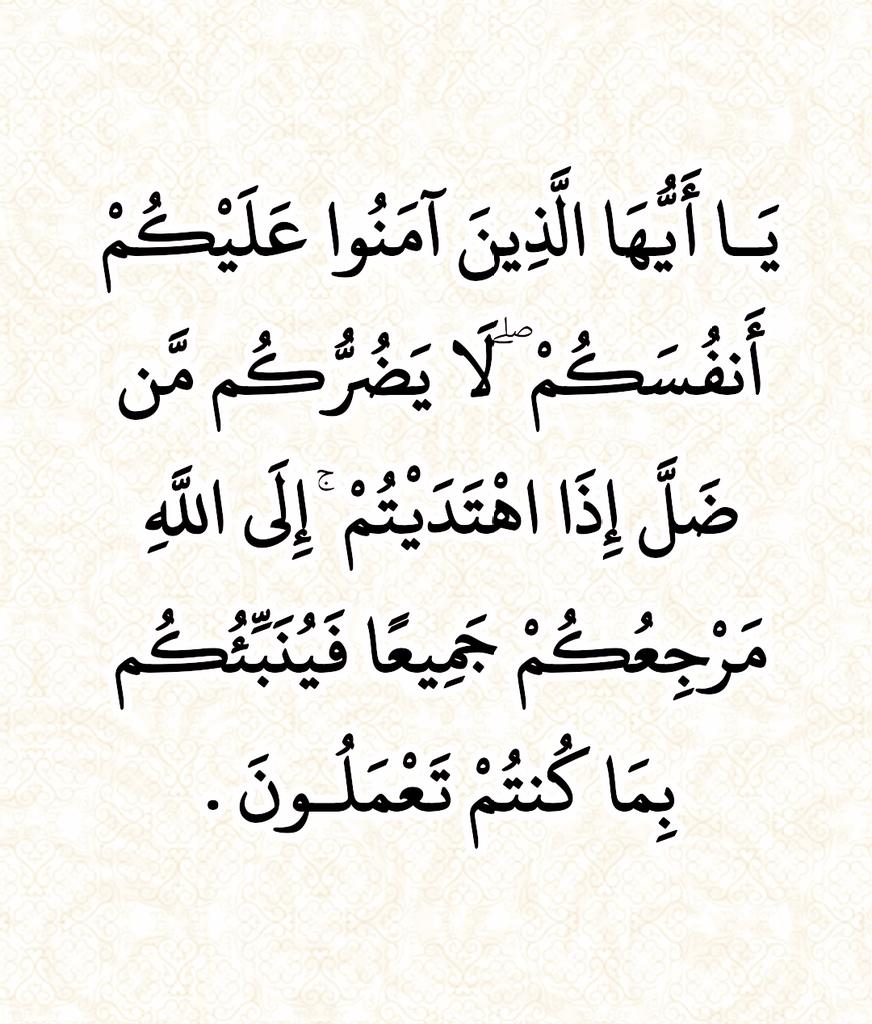 يَـا أَيُّهَا الَّذِينَ آمَنُوا عَلَيْكُمْ
أَنفُسَكُمْ ۖ لَا يَضُرُّكُم مَّن
ضَلَّ إِذَا اهْتَدَيْتُمْ ۚ إِلَى اللَّهِ
مَرْجِعُكُمْ جَمِيعًا فَيُنَبِّئُكُم
بِمَا كُنتُمْ تَعْمَلُـونَ .